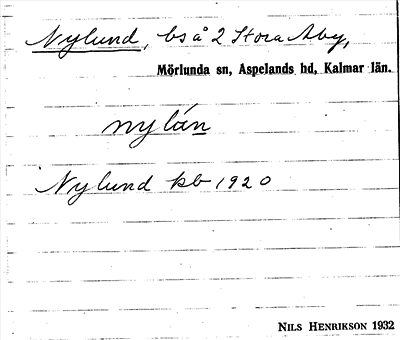 Nylund, bs å 2 Stora Aby,
Mörlunda sn, Aspelands hd, Kalmar län.
nylán
Nylund kb 1920
NILS HENRIKSON 1932